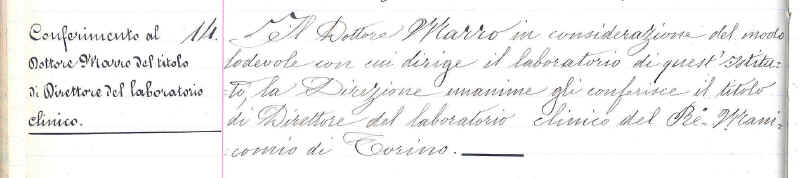 Conferimento al 14.
Dottore Marro del titolo
di Direttore del laboratorio
clinico.
Il Dottore Marro in considerazione del modo
lodevole con cui dirige il laboratorio di quest' Istitu-
to, la Direzione unanime gli conferisce il titolo
di Direttore del laboratorio clinico del Rê. Mani-
comio di Torino.